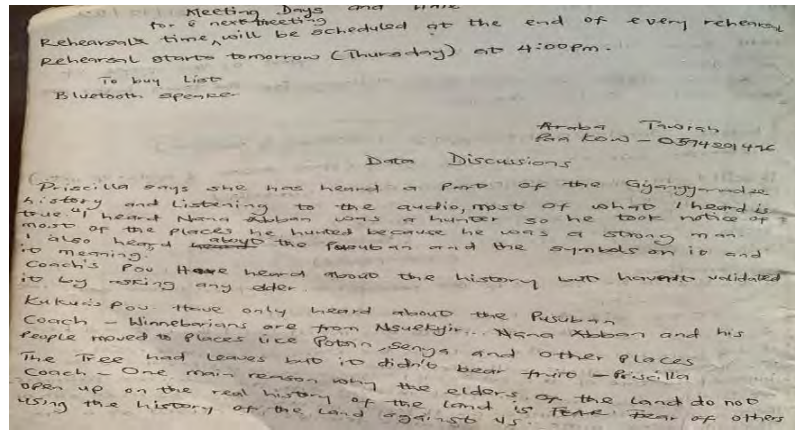 Meeting Days and time
for a next meeting
Rehearsals time, will be scheduled at the end of every rehearsal
Rehearsal starts tomorrow (Thursday) at 4:00pm.
To buy List
Bluetooth speaker
Araba
Paa Kow - 0574201496
Data Discussions
Priscilla says she has heard a part of the Gyangyanadze
history and Listening to the audio, most of what I heard is
true. "I heard Nana Abban was a hunter so he took notice of
most of the places he hunted because he was a strong man.
I also heard about the Pusuban and the symbols on it and
it meaning."
Coach's Pov Have heard about the history but havent validated
it by asking any elder.
Kukua's Pov. Have only heard about the Pusuban
Coach - Winnebarians are from Nsuekyir... Nana Abban and his
People moved to places like Potsin, Senya and other places
The Tree had leaves but it didn't bear fruit - Priscilla
Coach - One main reason why the elders of the land do not
open up on the real history of the land is Fear of others
using the history of the land against us.